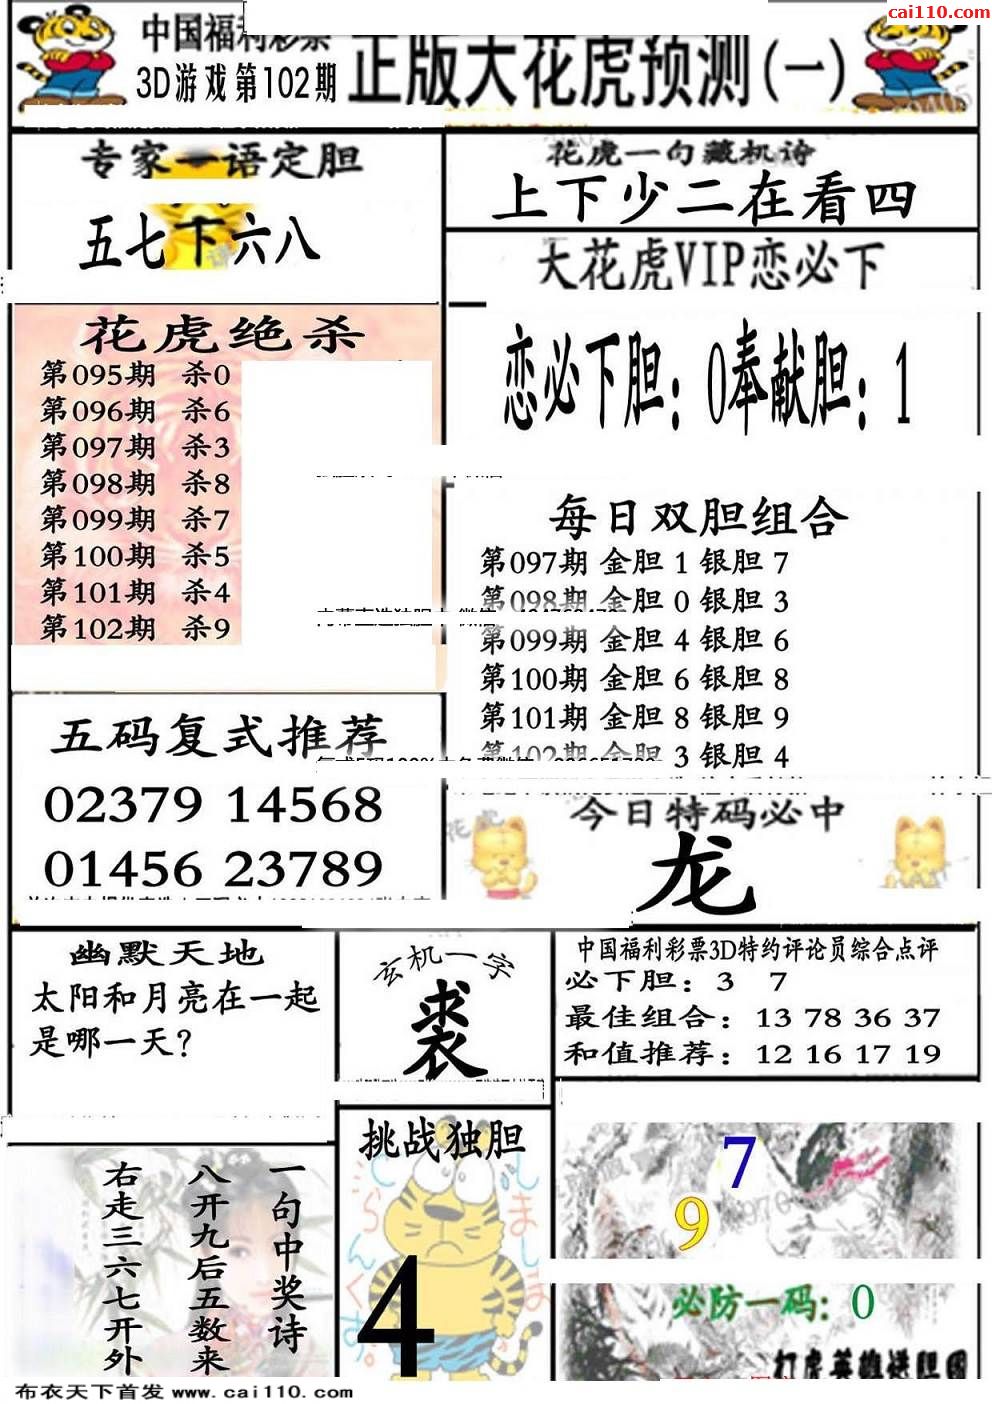 cai110.com
中国福利彩票
3D游戏第102期
正版大花虎预测(一)
专家一语定胆
五七下六八
花虎一句藏机诗
上下少二在看四
大花虎VIP恋必下
恋必下胆：0奉献胆：1
花虎绝杀
第095期 杀0
第096期 杀6
第097期 杀3
第098期 杀8
第099期 杀7
第100期 杀5
第101期 杀4
第102期 杀9
每日双胆组合
第097期 金胆 1 银胆 7
第098期 金胆 0 银胆 3
第099期 金胆 4 银胆 6
第100期 金胆 6 银胆 8
第101期 金胆 8 银胆 9
第102期 金胆 3 银胆 4
五码复式推荐
02379 14568
01456 23789
今日特码必中
龙
幽默天地
太阳和月亮在一起
是哪一天?
玄机一字
裘
中国福利彩票3D特约评论员综合点评
必下胆：3 7
最佳组合：13 78 36 37
和值推荐：12 16 17 19
一句中奖诗
八开九后五数来
右走三六七开外
挑战独胆
4
7
9
必防一码：0
打虎英雄进胆图
布衣天下首发 www.cai110.com